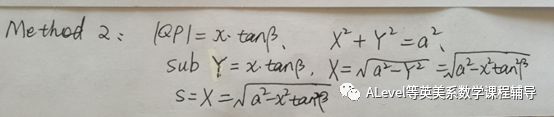 Method 2: |QP| = x·tanβ. X² + Y² = a².
sub Y = x·tanβ. X = √(a²-Y²) = √(a²-x²tan²β)
S = X = √(a²-x²tan²β)
ALevel等英美系数学课程辅导